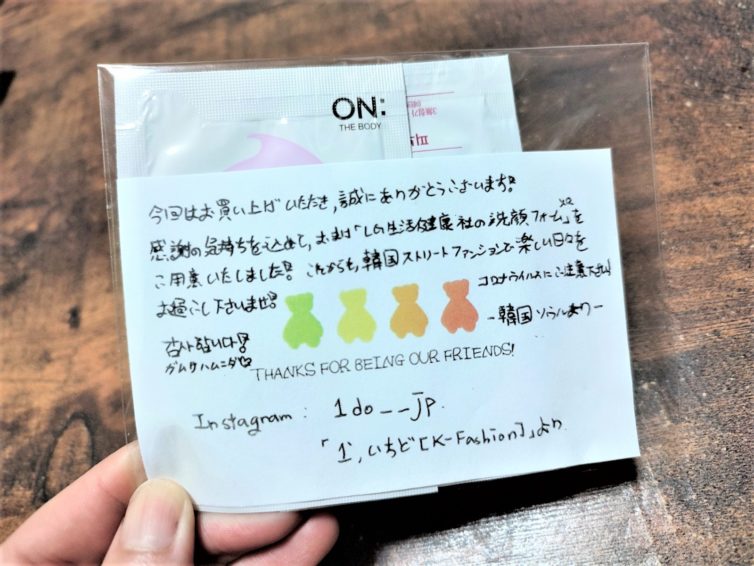 ON:
THE BODY
今回はお買い上げいただき,誠にありがとうございます!
感謝の気持ちを込めて,おまけ「LG生活健康社の洗顔フォーム」x2を
ご用意いたしました! これからも,韓国ストリートファッションで楽しい日々を
お過ごし下さいませ!
コロナウイルスにご注意下さい!
감사합니다!
ガムサハムニダ♡
-韓国ソウルより-
THANKS FOR BEING OUR FRIENDS!
Instagram: 1do__jp.
「1도,いちど[K-Fashion]」より